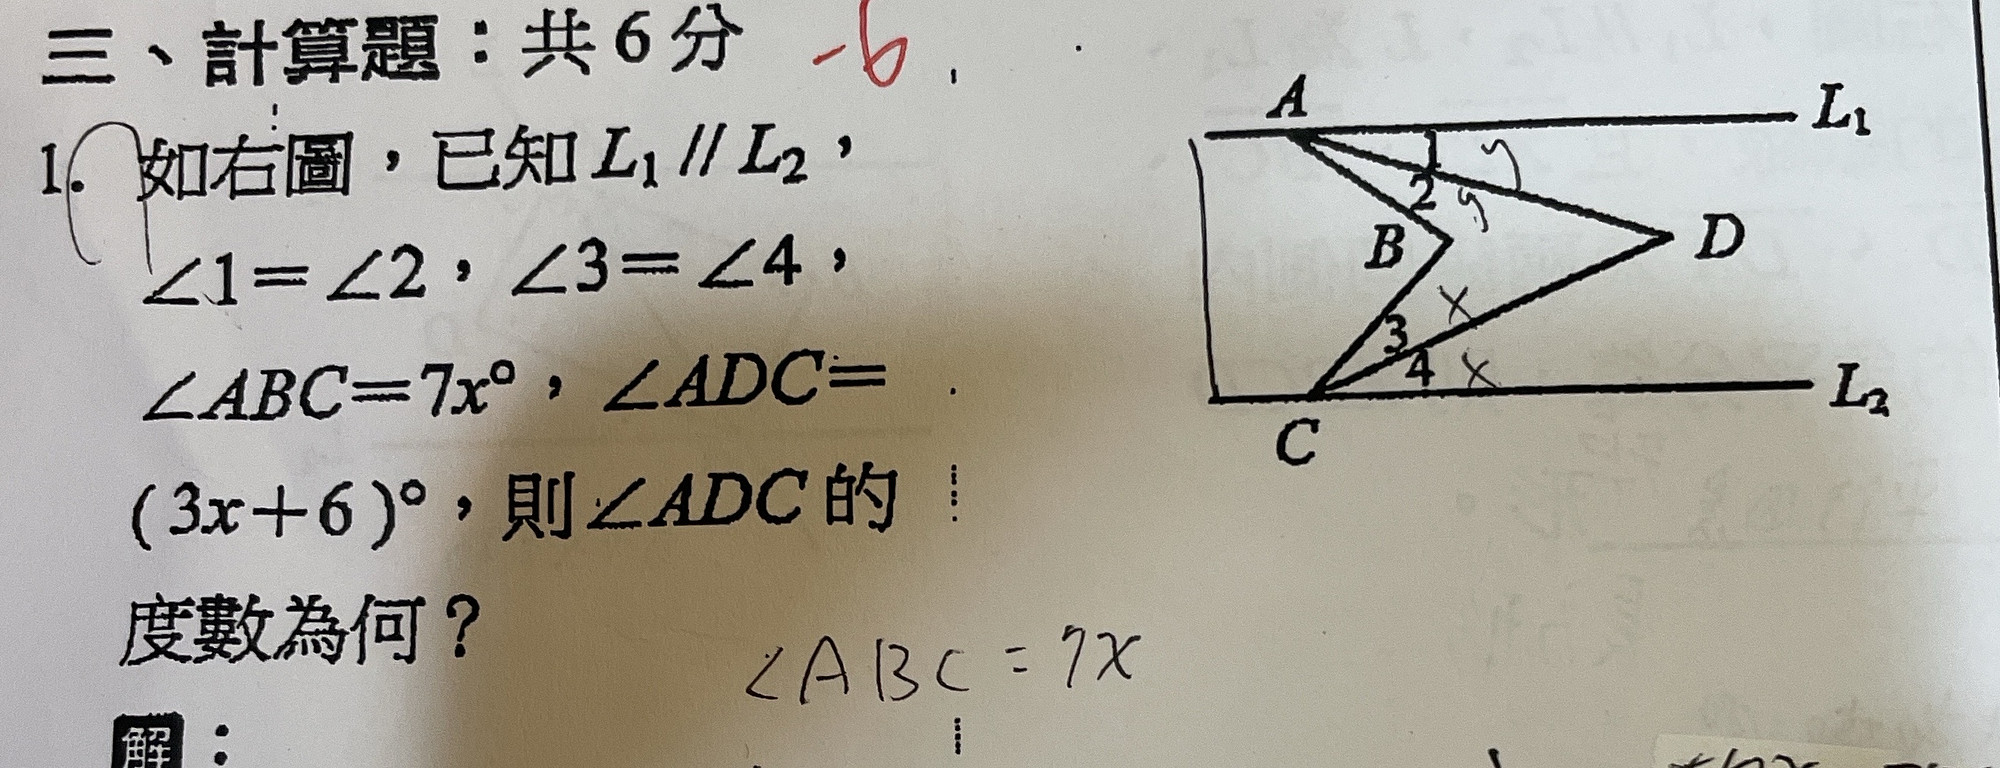 三、計算題：共6分 -6
1. 如右圖，已知 L₁ // L₂，
∠1＝∠2，∠3＝∠4，
∠ABC＝7x°，∠ADC＝
(3x＋6)°，則∠ADC 的
度數為何？
解：
A
L₁
1 y
2 y
B
D
3 x
4 x
C
L₂
∠ABC = 7x